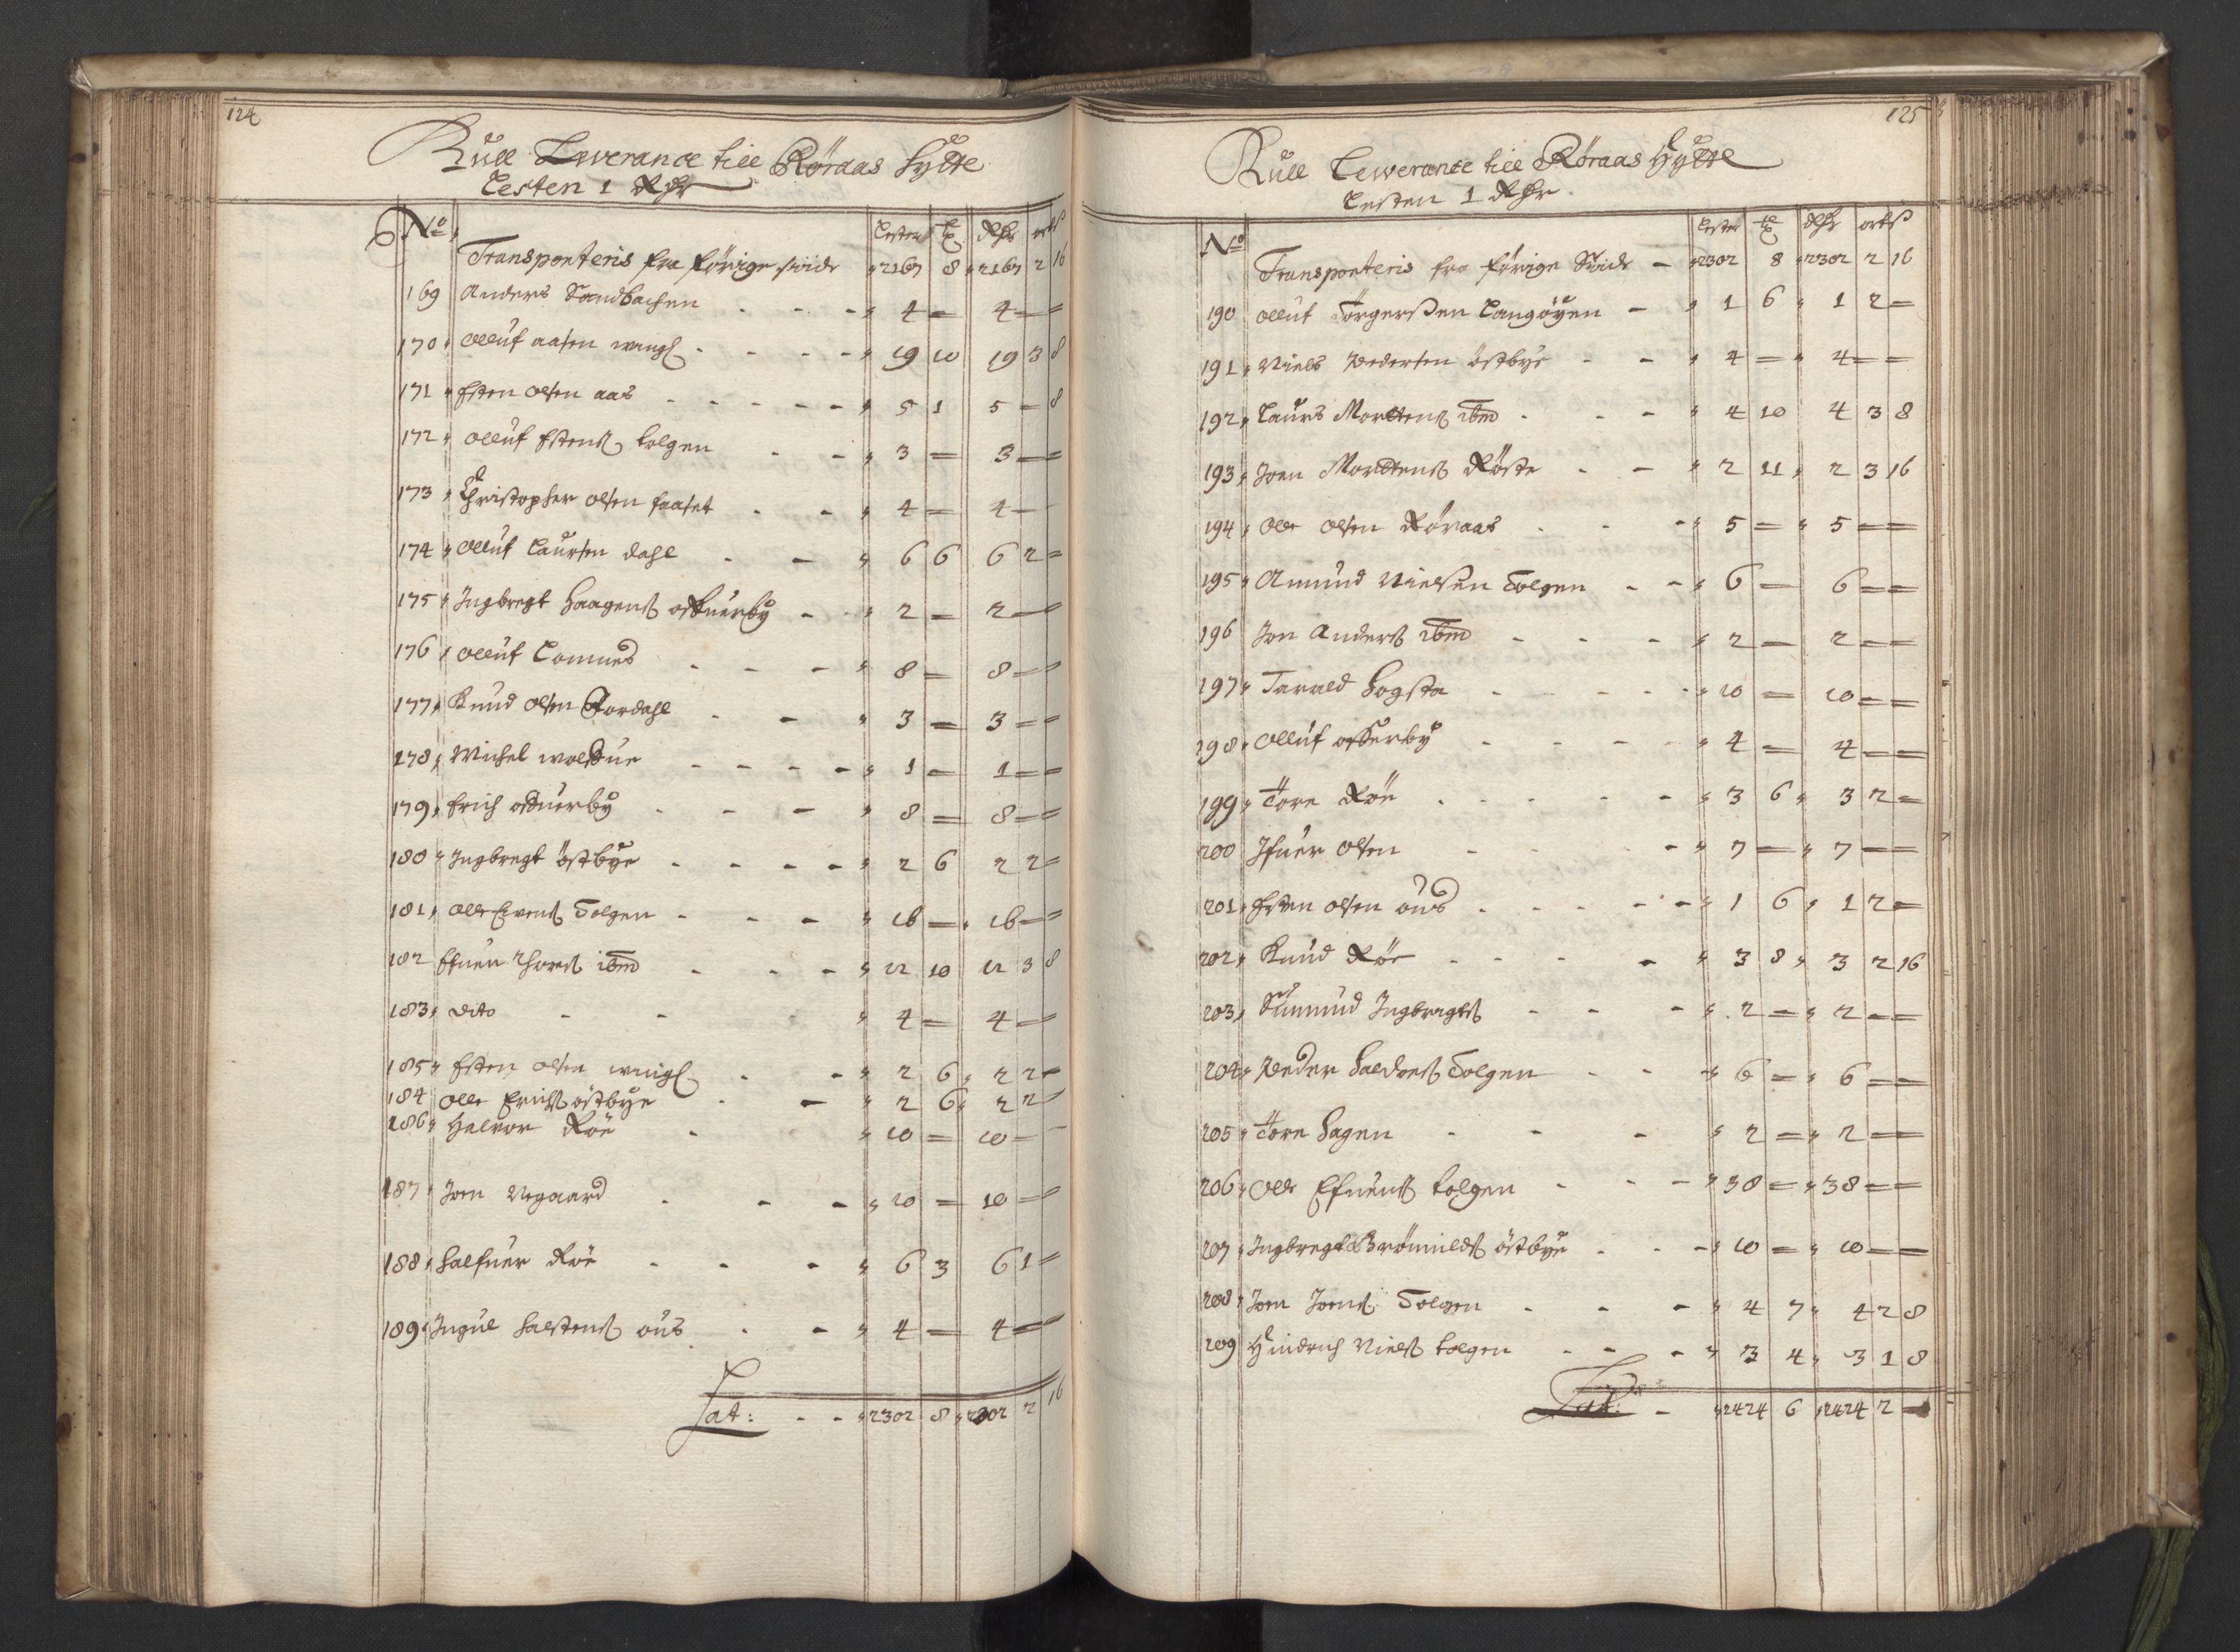 124
Kull Leverance till Röraas Hytte
Lesten 1 Rdr
No Lester Tr Rdr ort ß
Transporteris fra förige side 2167 8 2167 2 16
169 Anders Sandbachen - - - 4 = 4 = =
170 Olluf aasen wingl - - - - 19 10 19 3 8
171 Esten olsen aas - - - - - 5 1 5 = 8
172 olluf Estenß tolgen - - 3 = 3 = =
173 Christopher olsen faaset - - 4 = 4 =
174 olluf Laursen dahl - - 6 6 6 2 =
175 Ingbregt Haagenß osterby - - 2 = 2 =
176 olluf Lomnes - - - 8 = 8 = =
177 Knud olsen Nordahl - - 3 = 3 = =
178 Michel - - - - 1 = 1 = =
179 Erich - - - 8 = 8 = =
180 Ingbregt östbye - - - - 2 6 2 2 =
181 olle Evenß Tolgen - - - 16 = 16 = =
182 Efuen Thorß ibm - - - 12 10 12 3 8
183 dito - - 4 = 4 =
185 Esten olsen wingl - - 2 6 2 2 =
184 olle Erichß östbye - - 2 6 2 2
186 Halvor Röe - 10 = 10 =
187 Joen Vegaard - - - 10 = 10 =
188 Halfuer Röe - - - 6 3 6 1 =
189 Ingul Halstenß ous - - 4 = 4 =
Lat: - - 2302 8 2302 2 16
125
Kull Leverance till Röraas Hytte
Lesten 1 Rdr
No Lester Tr Rdr ort ß
Transporteris fra förige Side - 2302 8 2302 2 16
190 olluf Törgerßen Langöyen - 1 6 1 2 =
191 Niels Pedersen östbye - - 4 = 4 = =
192 Laurs Mortenß ibm - - - 4 10 4 3 8
193 Joen Mordtenß Röste - - 2 11 2 3 16
194 olle olsen Röraas - - - 5 = 5 = =
195 Amund Nielsen Tolgen - - 6 = 6 = =
196 Jon Anderß ibm - - - 2 = 2 = =
197 Tarald Hogsta - - - - - 10 = 10 = =
198 olluf osterby - - - - 4 = 4 = =
199 Tore Röe - - - - - 3 6 3 2 =
200 Ifuer olsen - - - 7 = 7 = =
201 Esten olsen ous - - - - - 1 6 1 2 =
202 Knud Röe - - - - 3 8 3 2 16
203 Ingbregtß - - - 2 = 2 = =
204 Peder Haldoeß Tolgen - - - 6 = 6 = =
205 Tore Hagen - - - 2 = 2 = =
206 Olle Efuenß tolgen - - - 38 = 38 = =
207 Ingbregt Brömildß östbye - - - 10 = 10 = =
208 Joen Joenß Tolgen - - - 4 7 4 2 8
209 Hindrich Nielß tolgen - - - 3 4 3 1 8
Lat: - 2424 6 2424 2 =